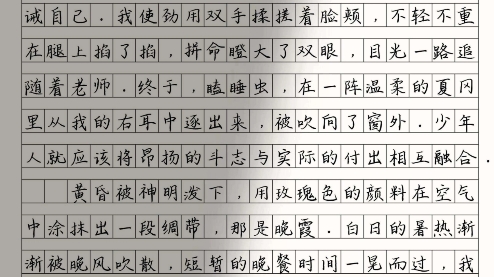 诫自己．我使劲用双手揉搓着脸颊，不轻不重
在腿上掐了掐，拼命瞪大了双眼，目光一路追
随着老师．终于，瞌睡虫，在一阵温柔的夏风
里从我的右耳中逐出来，被吹向了窗外．少年
人就应该将昂扬的斗志与实际的付出相互融合．
黄昏被神明泼下，用玫瑰色的颜料在空气
中涂抹出一段绸带，那是晚霞．白日的暑热渐
渐被晚风吹散，短暂的晚餐时间一晃而过，我